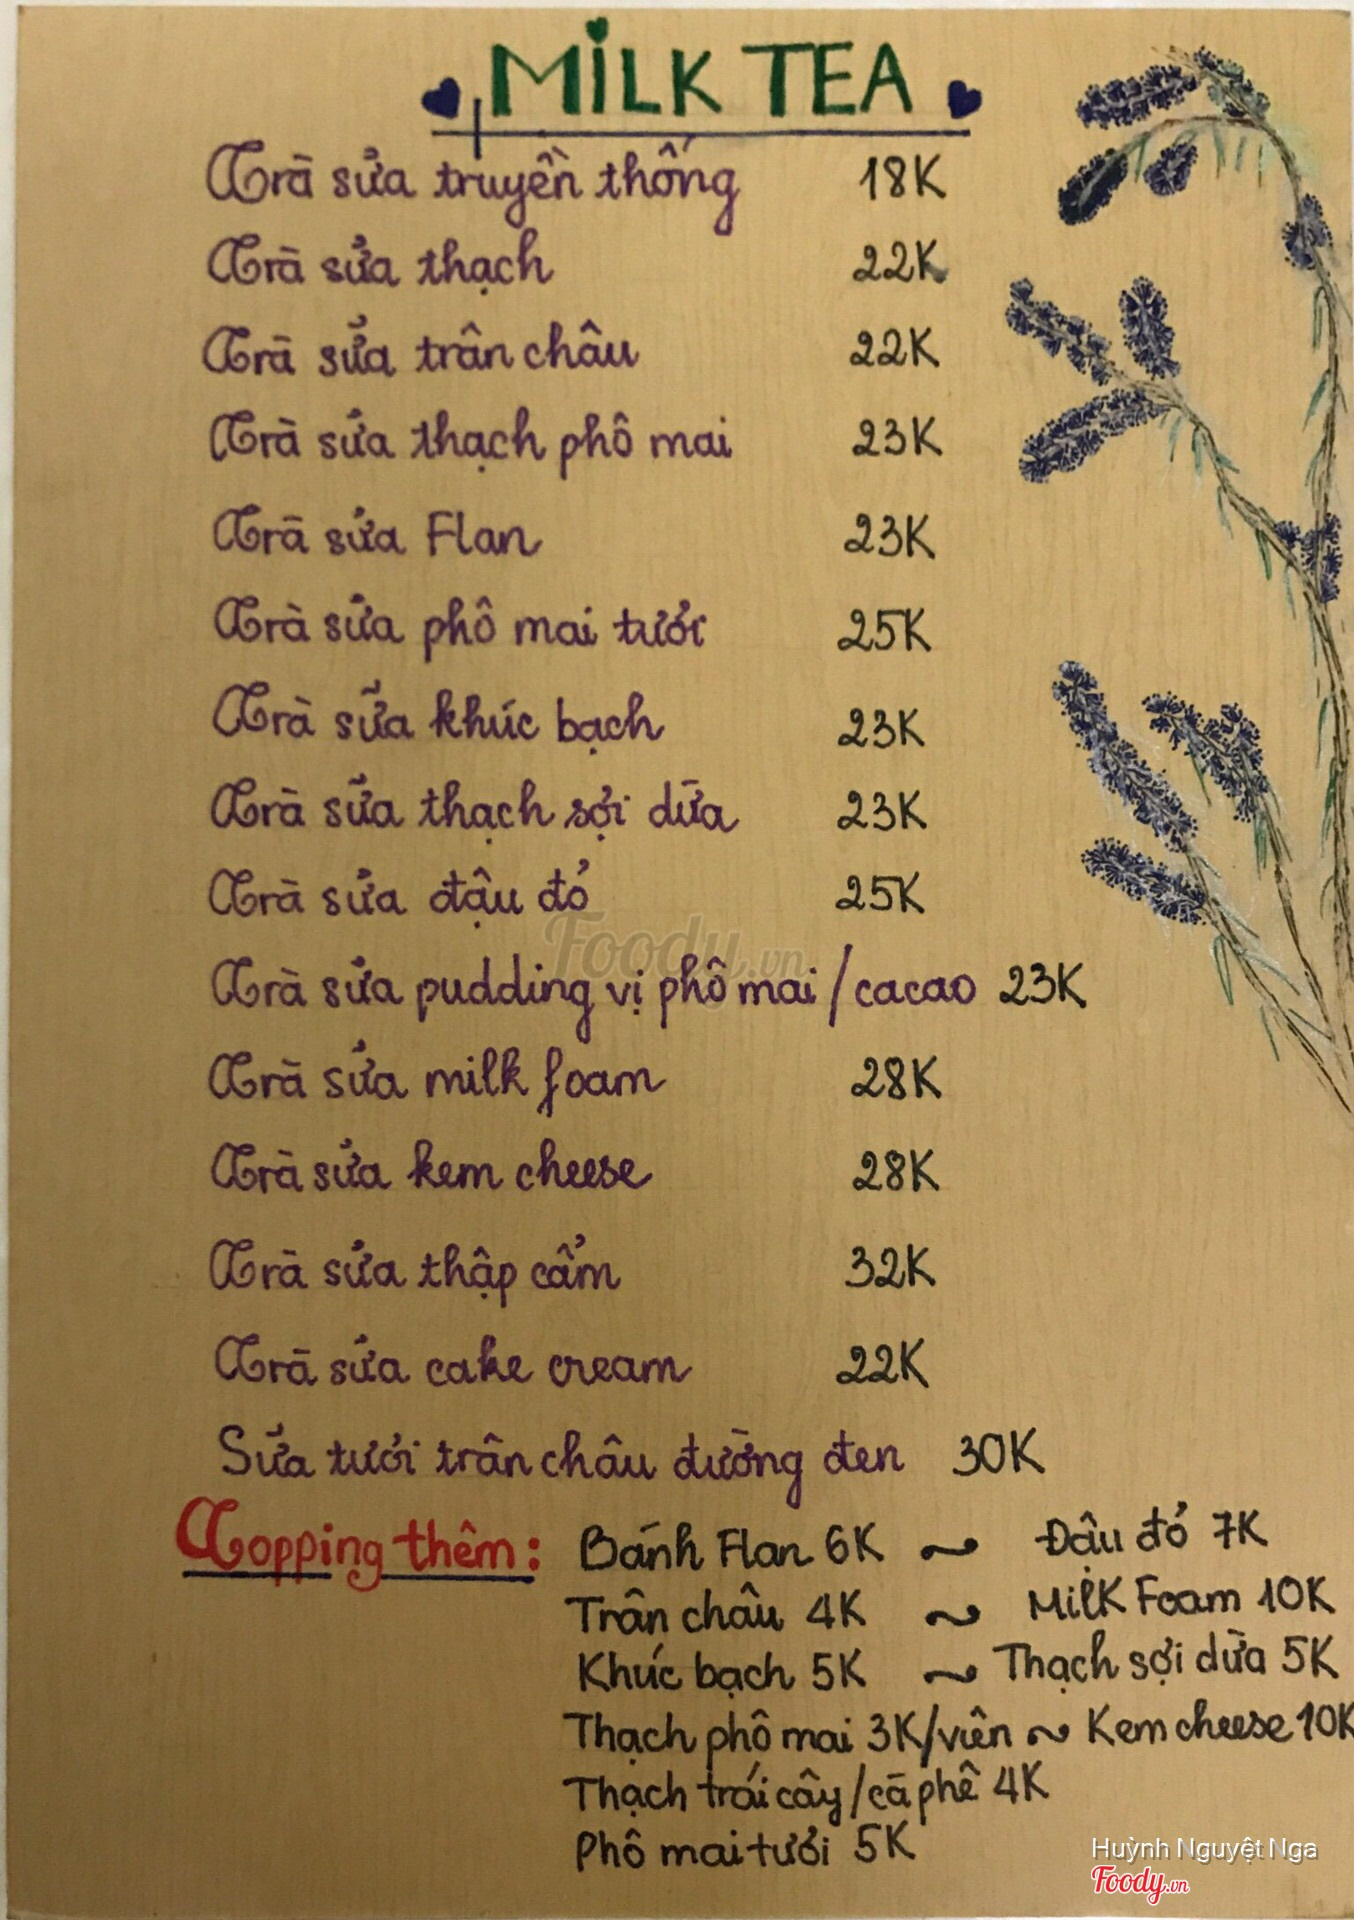 MILK TEA
Trà sữa truyền thống 18K
Trà sữa thạch 22K
Trà sữa trân châu 22K
Trà sữa thạch phô mai 23K
Trà sữa Flan 23K
Trà sữa phô mai tươi 25K
Trà sữa khúc bạch 23K
Trà sữa thạch sợi dừa 23K
Trà sữa đậu đỏ 25K
Foody.vn
Trà sữa pudding vị phô mai / cacao 23K
Trà sữa milk foam 28K
Trà sữa kem cheese 28K
Trà sữa thập cẩm 32K
Trà sữa cake cream 22K
Sữa tươi trân châu đường đen 30K
Topping thêm: Bánh Flan 6K ~ Đậu đỏ 7K
Trân châu 4K ~ Milk Foam 10K
Khúc bạch 5K ~ Thạch sợi dừa 5K
Thạch phô mai 3K/viên ~ Kem cheese 10K
Thạch trái cây/cà phê 4K
Phô mai tươi 5K
Huỳnh Nguyệt Nga
Foody.vn